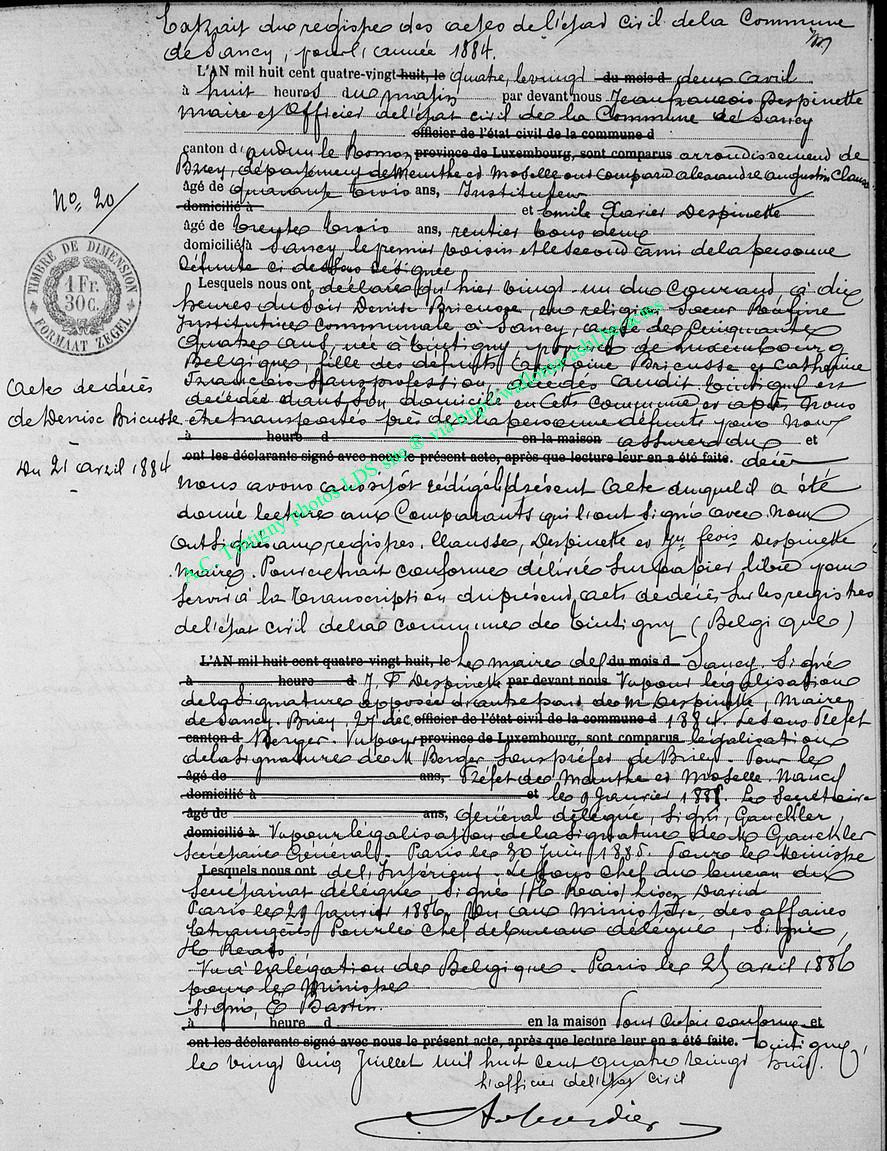 Extrait du registre des actes de l'état civil de la Commune
de Sancy, pour l'année 1884.
L'AN mil huit cent quatre-vingt huit, le quatre, le vingt du mois d deux avril
à huit heures du matin par devant nous Jean françois Despinette
Maire et Officier de l'état civil de la Commune de Sancy
officier de l'état civil de la commune d
canton d'audun le Roman province de Luxembourg, sont comparus arrondissement de
Briey, département de Meurthe et Moselle ont comparu alexandre augustin Clausse
âgé de quarante trois ans, Instituteur
domicilié à et Emile Xavier Despinette
âgé de trente trois ans, rentier tous deux
domicilié à Sancy, le premier voisin et le second ami de la personne
défunte ci dessous désignée
Lesquels nous ont déclaré qu'hier vingt-un du courant, à dix
heures du soir Denise Bricusse, en religion Soeur
Institutrice communale à Sancy, agée de Cinquante
quatre ans, née à tintigny de Luxembourg
Belgique, fille des défunts Bricusse et Catherine
François sans profession, décédés audit tintigny est
décédée dans son domicile en cette commune, et après nous
être transportés près de la personne défunte pour nous
à heure d en la maison assurer du et
ont les déclarants signé avec nous le présent acte, après que lecture leur en a été faite. décès
Nous avons aussitôt rédigé le présent acte duquel il a été
donné lecture aux Comparants qui l'ont signé avec nous
Ont signés aux registres. Clausse, Despinette et Jn fcois Despinette
Maire. Pour extrait conforme délivré sur papier libre pour
servir à la transcription du présent acte de décès sur les registres
de l'état civil de la commune de tintigny (Belgique)
No. 20
TIMBRE DE DIMENSION
1 Fr.
30 c.
FORMAAT ZEGEL
Acte de décès
de Denise Bricusse
Du 21 avril 1884
A.C. Tintigny photos LDS site ® via http://wallonia-asbl
L'AN mil huit cent quatre-vingt huit, le Le maire de du mois d Sancy. Signé
à heure d J. F Despinette par devant nous Vu pour légalisation
de la signature apposée d'autre part de M Despinette, Maire
de Sancy. Briey, 27 déc officier de l'état civil de la commune d 1884. Le sous Préfet
canton d Berger. Vu pour province de Luxembourg, sont comparus légalisation
de la signature de M Berger sous préfet de Briey. Pour le
âgé de ans, Préfet de Meurthe et Moselle. Nancy
domicilié à et le 9 Janvier 1885. Le Secrétaire
âgé de ans, Général délégué, Signé, Gauckler,
domicilié à Vu pour légalisation de la signature de M Gauckler
Secrétaire Général. Paris le 30 Juin 1885. Pour le Ministre
Lesquels nous ont de l'Intérieur. Le sous Chef du bureau du
Secrétariat délégué, Signé (H Reais) lisez David
Paris le 29 Janvier 1886. Vu au Ministère des affaires
Etrangères Pour le Chef de bureau délégué, Signé,
H Reais
Vu à la légation de Belgique. Paris le 25 avril 1886
pour le Ministre
Signé, E Bastin.
à heure d en la maison Pour Copie conforme et
ont les déclarants signé avec nous le présent acte, après que lecture leur en a été faite. tintigny,
le vingt cinq Juillet mil huit cent quatre vingt huit.
L'officier de l'état civil